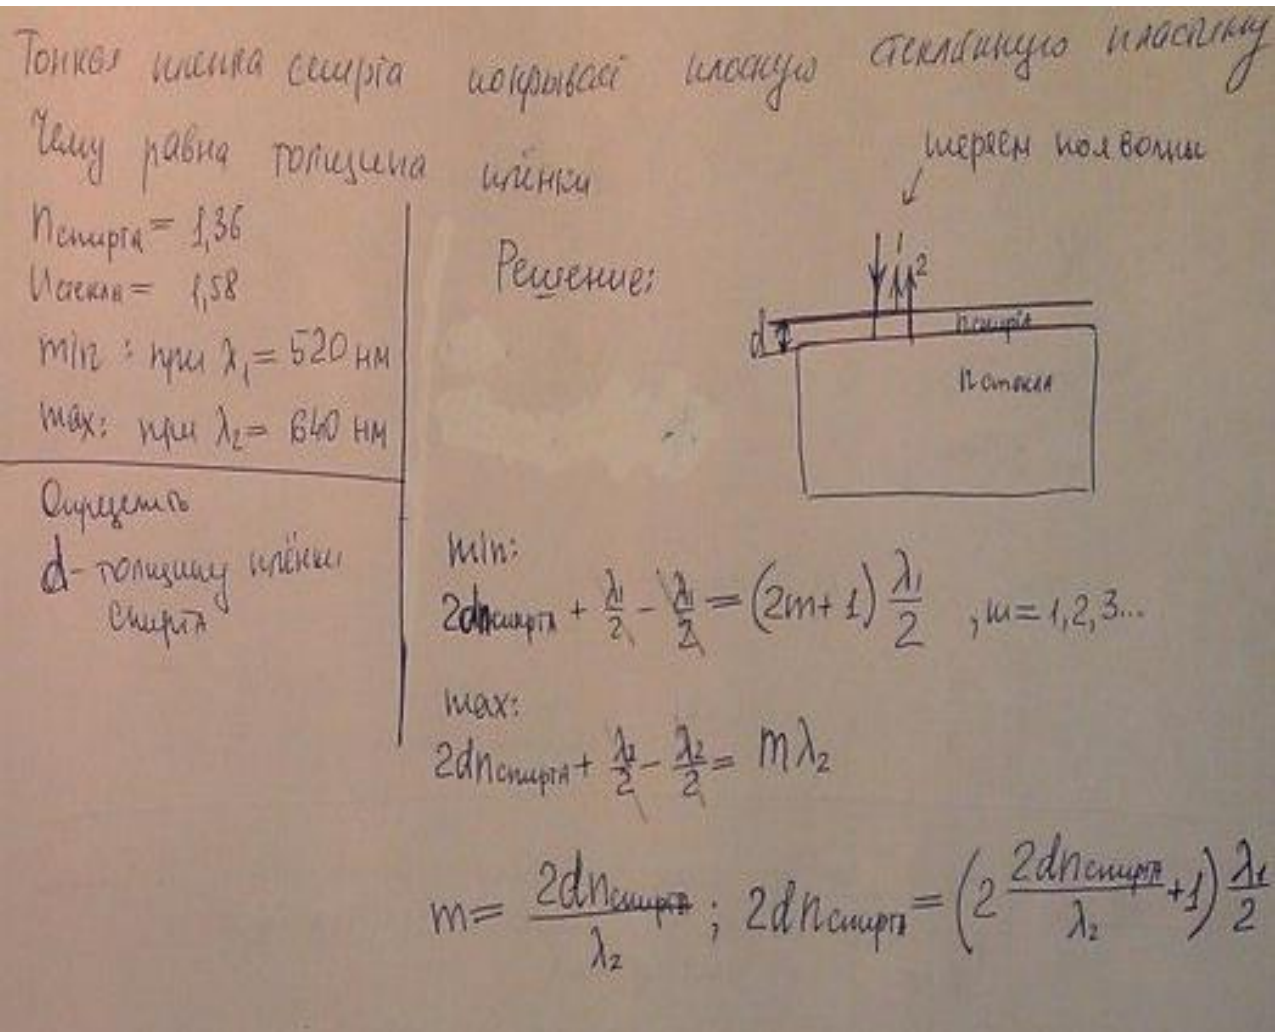 Тонкая пленка спирта покрывает плоскую стеклянную пластину
Чему равна толщина плёнки
теряем пол волны
n спирта = 1,36
n стекла = 1,58
min : при λ₁ = 520 нм
max: при λ₂ = 640 нм
Определить
d - толщину плёнки
спирта
Решение:
1 2
d
n спирта
n стекла
min:
2dn спирта + λ₁/2 - λ₁/2 = (2m+1) λ₁/2 , m = 1,2,3...
max:
2dn спирта + λ₂/2 - λ₂/2 = mλ₂
m = 2dn спирта/λ₂ ; 2dn спирта = (2 2dn спирта/λ₂ + 1) λ₁/2